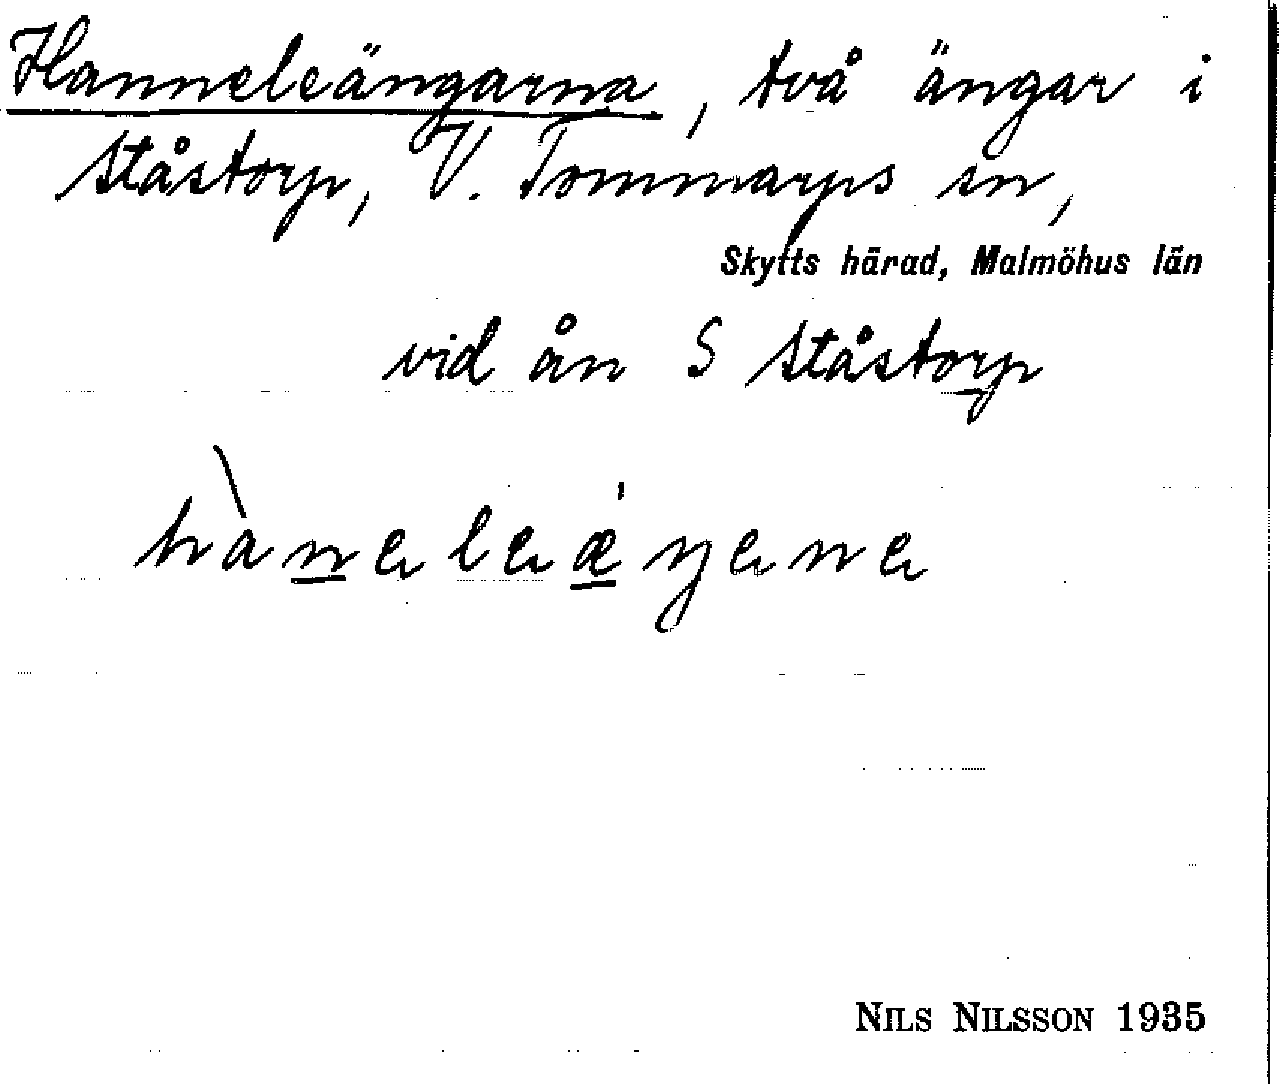 Hanneleängarna, två ängar i
Ståstorp, V. Tommarps sn,
Skytts härad, Malmöhus län
vid ån S Ståstorp
hàneleæŋene
NILS NILSSON 1935